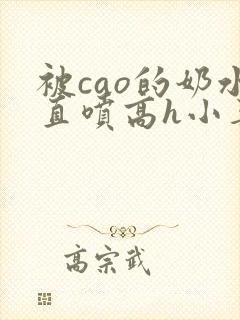 被cao的奶水
直喷高h小
高宗武